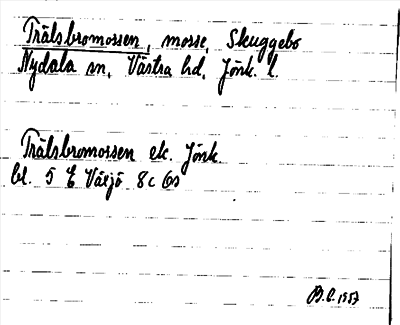 Trälsbromossen, mosse, Skuggebo
Nydala sn, Västra hd, Jönk. l.
Trälsbromossen ek. Jönk
bl. 5 E Växjö 8 c
B.E. 1957